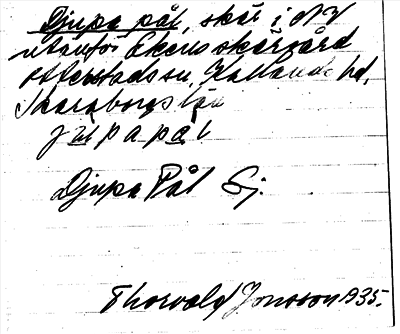 Djupa pål, skär i NV
utanför Ekens skärgård
Otterstads sn, Kållands hd,
Skaraborgs län
jupa pål
Djupa Pål Sj.
Thorvald Jonsson 1935.